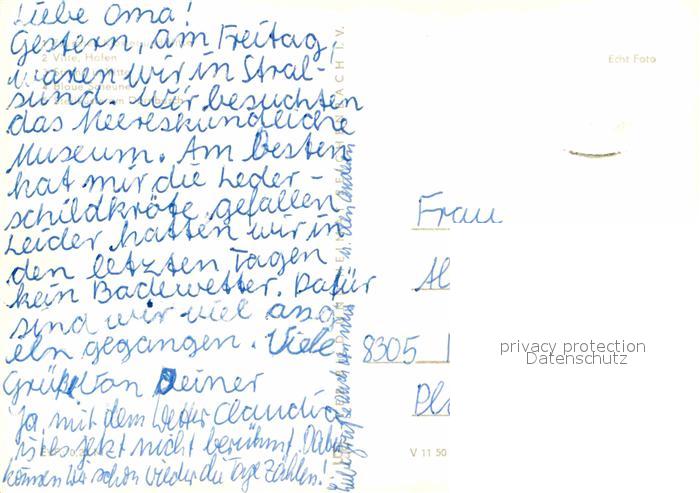 Liebe Oma!
Gestern, am Freitag,
waren wir in Stral-
sund. Wir besuchten
das Meereskundliche
Museum. Am besten
hat mir die Leder-
schildkröte gefallen
Leider hatten wir in
den letzten Tagen
kein Badewetter. Dafür
sind wir viel ang
eln gegangen. Viele
Grüße von Deiner
Claudia
Ja, mit dem Wetter
ist es jetzt nicht berühmt. Dabei
können wir schon wieder die Tage zählen!
Liebe Grüße auch von uns
2 Vitte, Hafen
Blaue Scheune
Echt Foto
Frau
Al
8305
Pl
V 11 50
privacy protection
Datenschutz